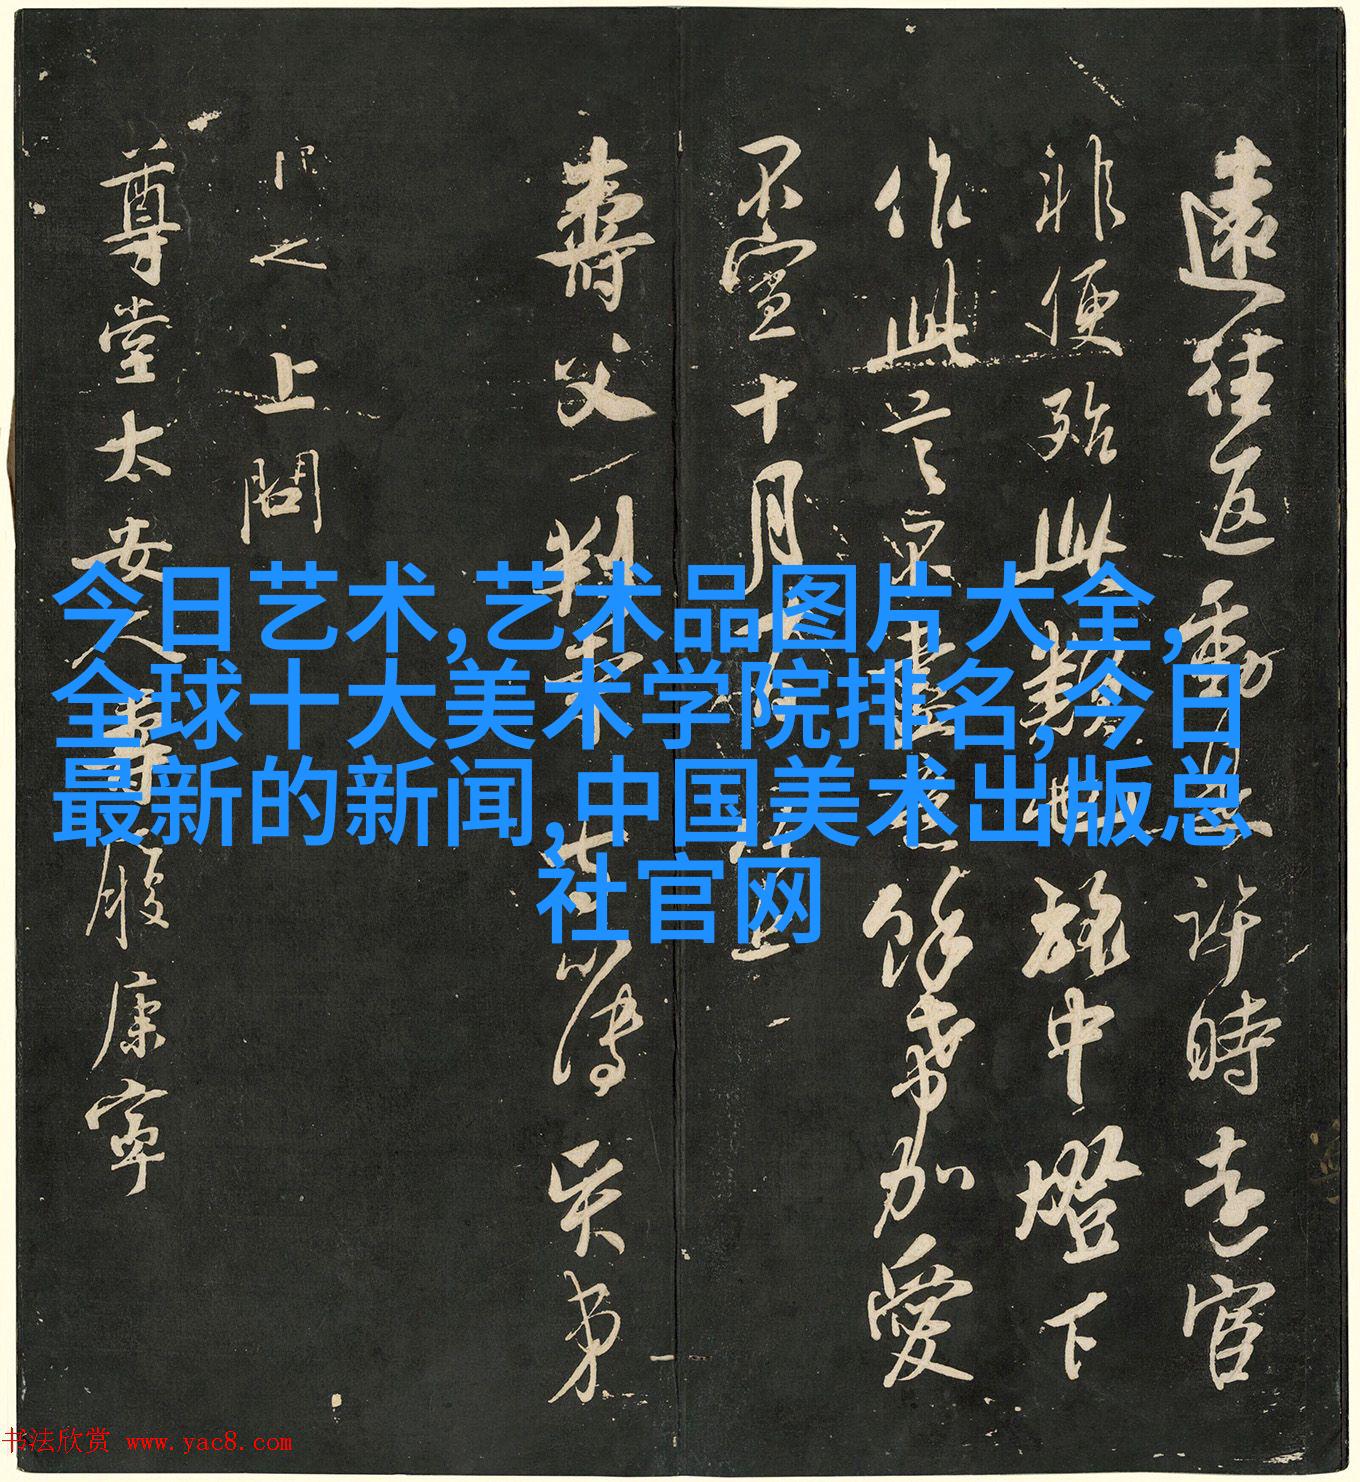 今日艺术,艺术品图片大全,
全球十大美术学院排名,今日
最新的新闻,中国美术出版总
社官网
遠往返動許時官
非便殆此旅中燈下
作此餘希加愛
不宣十月
壽父判傳
之上問
尊堂太安人尊履康寧
书法欣赏 www.yac8.com